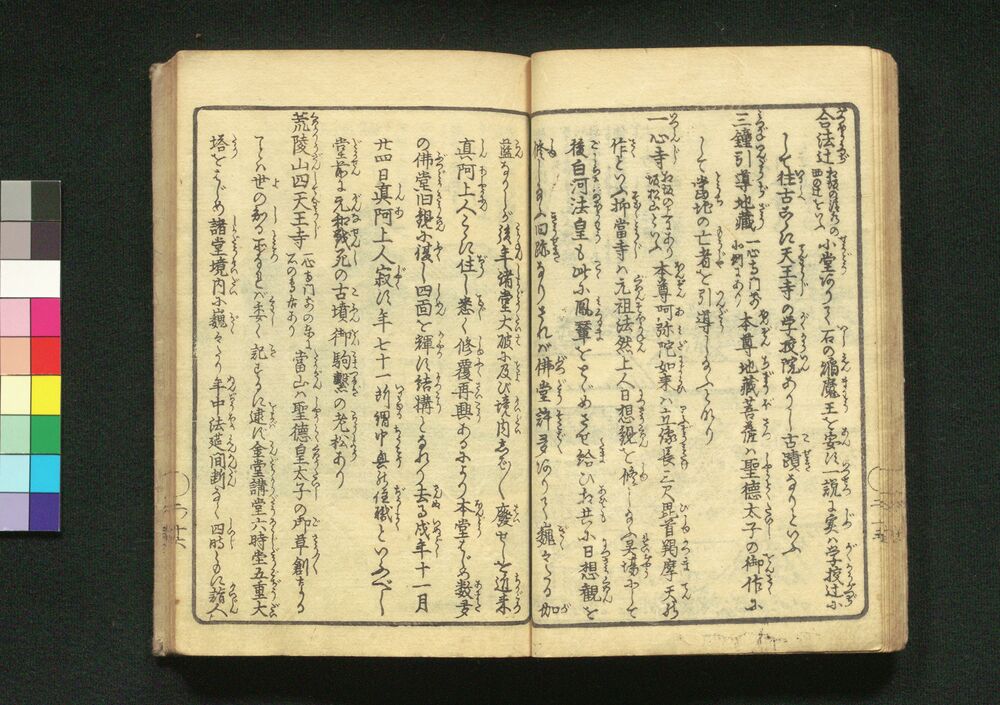 合法辻 お坂の北の方の四辻をいふ 小堂ありて石の焔魔王を安ず一説に実ハ学校辻に
して往古こゝに天王寺の学校院あり古蹟なりといふ
三鐘引導地蔵 一心寺門前小側にあり 本尊地蔵菩薩ハ聖徳太子の御作に
して当地の亡者を引導し給ふとなり
一心寺 坂松山といふ 本尊阿弥陀如来ハ立像長三尺毘首羯摩天の
作といふ抑當寺ハ元祖法然上人日想観を修し給ふ霊場にして
後白河法皇も此に鳳輦をとゞめさせ給ひお共に日想観を
修し給ふ旧跡なりされバ佛堂許多ありて巍々たる伽
藍なりしが後年諸堂大破に及び境内悉く廃せしを近来
真阿上人こゝに住し悉く修覆再興あるにより本堂はじめ数多
の佛堂旧観に復し四面を輝し結構となれり去る戌年十一月
廿四日真阿上人寂す年七十一所謂中興の住職といふべし
堂前に元和戦死の古墳御駒繋の老松あり
荒陵山四天王寺 一心寺門前の東 當山ハ聖徳皇太子の御草創にし
てハ世の知る所なれバ委く記すに逮ばず金堂講堂六時堂五重大
塔をはじめ諸堂境内に巍々たり年中法莚間断なく四時ともに詣人